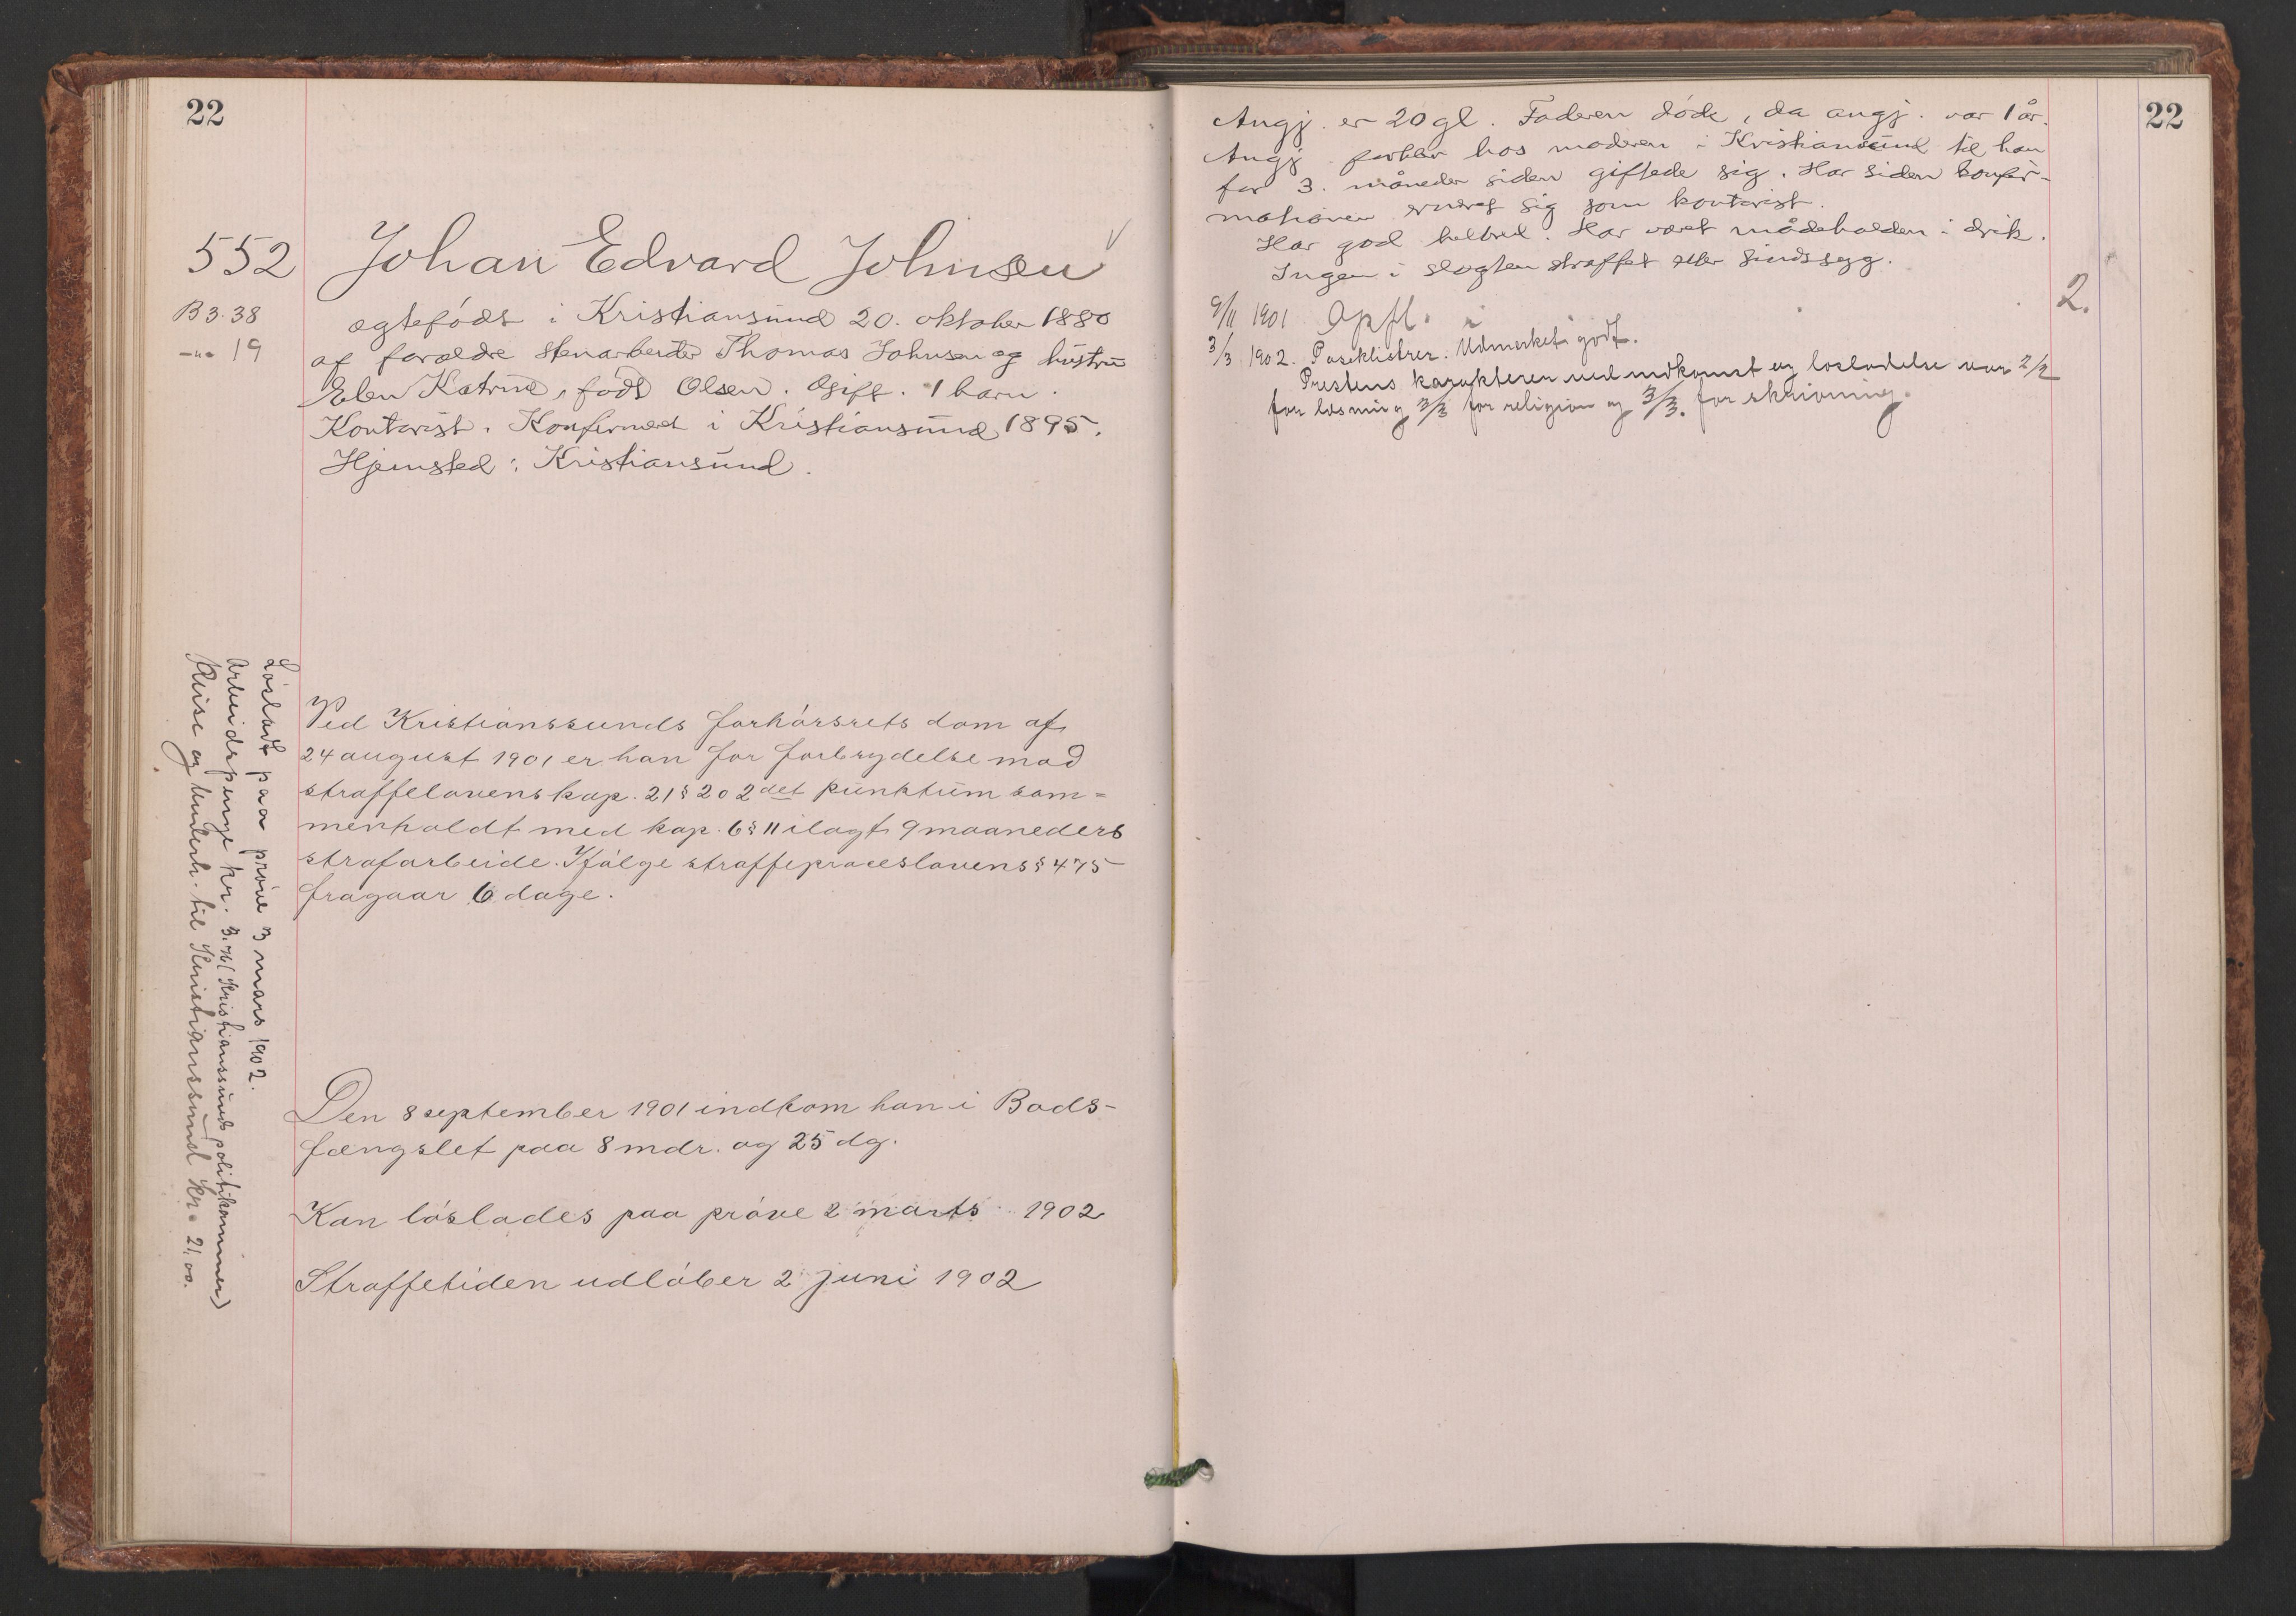 22
552
Johan Edvard Johnsen
B 3. 38
-"- 19
ægtefödt i Kristiansund 20. oktober 1880
af forældre stenarbeider Thomas Johnsen og hustru
Elen Katrine, födt Olsen. Gift. 1 barn.
Kontorist. Konfirmeret i Kristiansund 1895.
Hjemsted: Kristiansund.
Ved Kristianssunds forhörsrets dom af
24 august 1901 er han for forbrydelse mod
straffelovens kap. 21 § 20 2det punktum sam=
menholdt med kap. 6 § 11 ilagt 9 maaneders
strafarbeide. Ifölge straffeproceslovens § 475
fragaar 6 dage.
Den 8 september 1901 indkom han i Bods-
fængslet paa 8 mdr. og 25 dg.
Kan löslades paa pröve 2 marts 1902
Straffetiden udlöber 2 juni 1902
Lösladt paa pröve 3 mars 1902.
Arbeidspenge kr. 3.76 (Kristianssunds politikammer)
Reise og underh. til Kristianssund kr. 21,00.
22
Angj. er 20 gl. Faderen döde, da angj. var 1 år.
Angj. forblev hos moderen i Kristiansund til han
for 3. måneder siden giftede sig. Har siden konfir-
mationen ernæret sig som kontorist.
Har god helbred. Har været mådeholden i drik.
Ingen i slægten straffet eller sindssyg.
2.
9/11 1901 Opfl.
3/3 1902. Udmerket godt.
Prestens karakterer ved indkomst og lösladelse var 2/2
for læsning 3/3 for religion og 3/3. for skrivning.